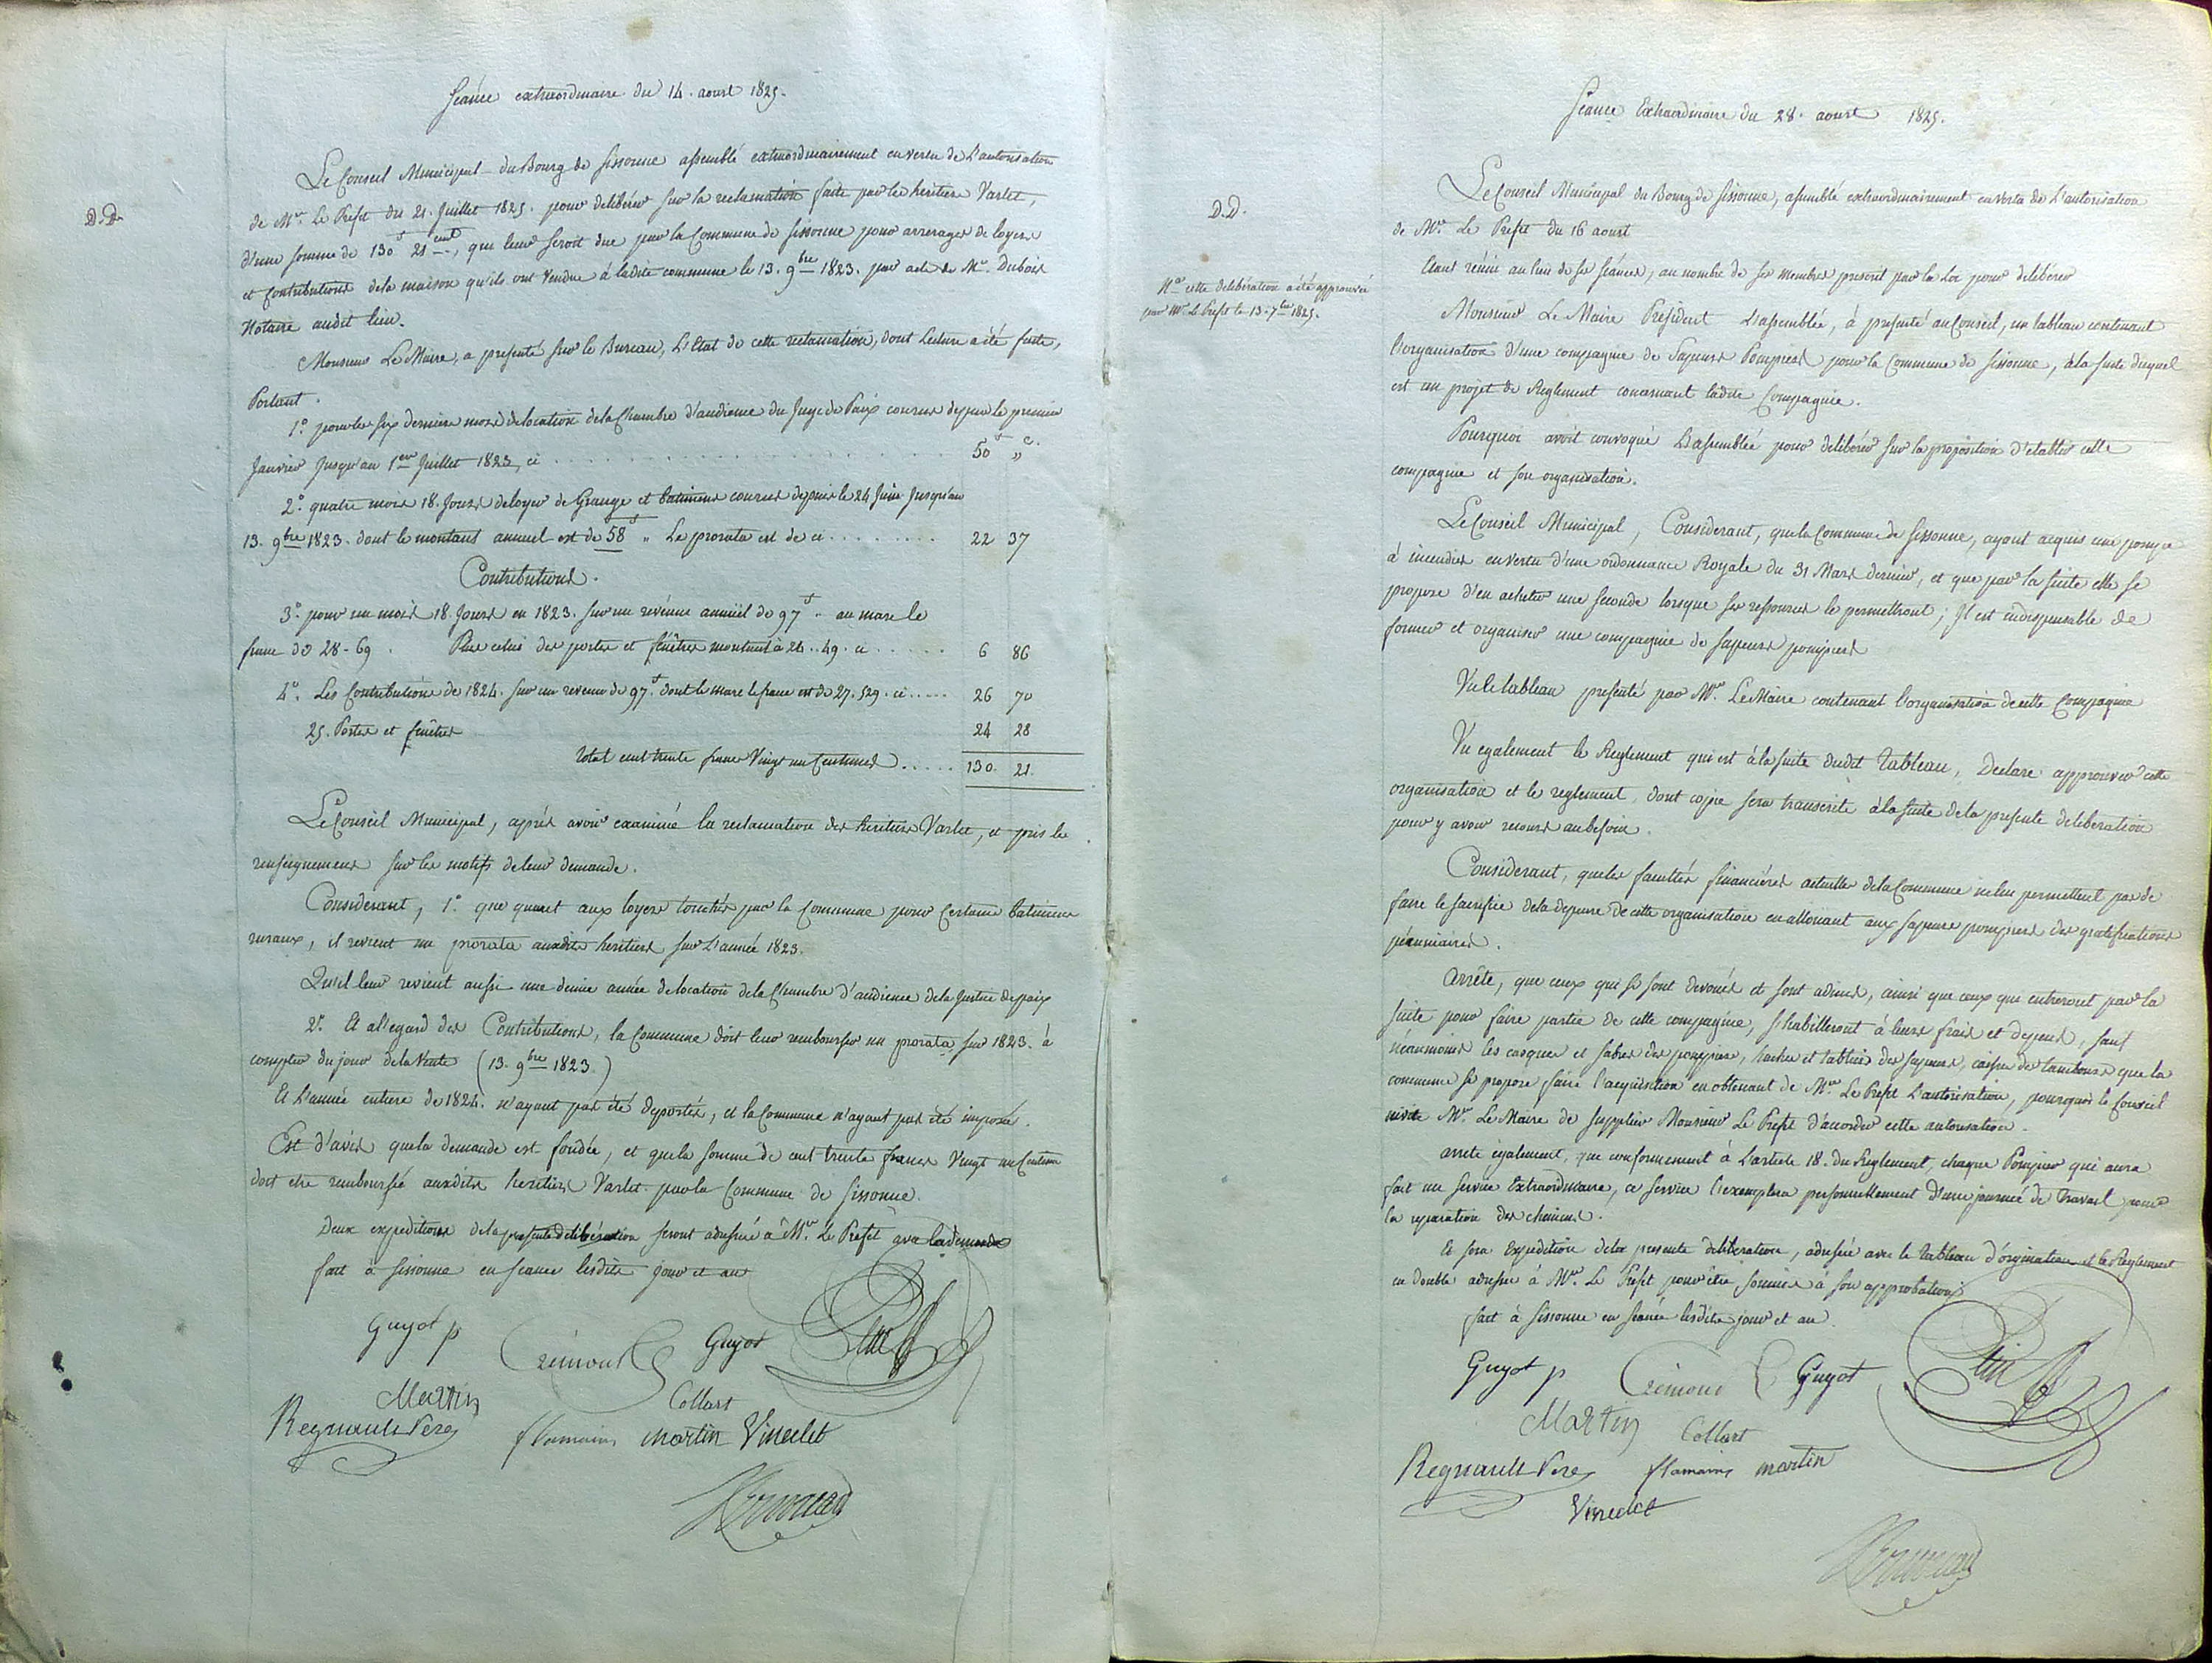 Séance extraordinaire du 14. aoust 1825.
D.D.
Le Conseil Municipal du Bourg de Sissonne assemblé extraordinairement en vertu de L'autorisation
de Mr. Le Préfet du 21. Juillet 1825. pour delibérer sur la reclamation faite par les heritiers Varlet,
d'une somme de 130f 21 cent., que leur seroit due par la Commune de Sissonne pour arrerages de loyers
et Contributions dela maison qu'ils ont vendue à ladite commune le 13. 9bre 1823. par acte de Me. Dubois
Notaire audit lieu.
Monsieur Le Maire, a presenté sur le Bureau, L'Etat de cette reclamation, dont Lecture a été faite,
Portant.
1.° pour les six derniers mois de location dela Chambre d'audience du Juge de Paix courus depuis le premier
Janvier Jusqu'au 1er Juillet 1823, ci . . . . . 50f "c.
2.° quatre mois 18. Jours de loyer de Grange et batimens courus depuis le 24 Juin Jusqu'au
13. 9bre 1823. dont le montant annuel est de 58f " Le prorata est de ci . . . . . 22 37
Contributions.
3.° pour un mois 18. Jours en 1823. sur un revenu annuel de 97f " au marc le
franc de 28-69. Plus celui des portes et fenêtres montant à 24..49. ci . . . . . 6 86
4.° Les Contributions de 1824. sur un revenu de 97f. dont le marc le franc est de 27.529. ci . . . . . 26 70
25. Portes et fenêtres 24 28
Total cent trente francs Vingt un Centimes . . . . . 130. 21.
Le Conseil Municipal, après avoir examiné la reclamation des heritiers Varlet, et pris les
renseignemens sur les motifs de leur demande.
Considerant, 1.° que quant aux loyers touchés par la Commune pour certains batimens
ruraux, il revient un prorata auxdits heritiers sur L'année 1823.
Qu'il leur revient aussi une demie année de location dela Chambre d'audience dela Justice de paix
2.° Et a l'egard des Contributions, la Commune doit leur rembourser un prorata sur 1823. à
compter du jour dela Vente (13. 9bre 1823.)
Et L'année entiere de 1824. n'ayant pas été deportés, et la Commune n'ayant pas été imposée.
Est d'avis que la demande est fondée, et que la somme de cent trente francs Vingt un Centimes
doit etre remboursée auxdits heritiers Varlet par la Commune de Sissonne.
Deux expeditions dela presente Deliberation seront adressées à Mr. Le Prefet avec la demande
fait à Sissonne en seance lesdits jour et an
Guyot p Crémont Guyot
Martin Collart
Regnault Pere flamain martin Vinchet
Séance Extraordinaire du 28. aoust 1825.
D.D.
Nta cette deliberation a été approuvée
par Mr. Le Prefet le 13. 7bre 1825.
Le Conseil Municipal du Bourg de Sissonne, assemblé extraordinairement en vertu de L'autorisation
de Mr. Le Prefet du 16 aoust
Etant réuni au lieu de ses séances, au nombre de ses membres prescrit par la Loi pour delibérer
Monsieur Le Maire President L'assemblée, à presenté au Conseil, un tableau contenant
l'organisation d'une compagnie de Sapeurs Pompiers pour la Commune de Sissonne, à la suite duquel
est un projet de Reglement concernant ladite Compagnie.
Pourquoi avoit convoqué L'assemblée pour delibérer sur la proposition d'etablir cette
compagnie et son organisation.
Le Conseil Municipal, Considerant, que la Commune de Sissonne, ayant acquis une pompe
à incendies en vertu d'une ordonnance Royale du 31 Mars dernier, et que par la suite elle se
propose d'en acheter une seconde lorsque ses ressources le permettront; Il est indispensable de
former et organiser une compagnie de sapeurs pompiers
Vu le tableau presenté par Mr. Le Maire contenant l'organisation de cette Compagnie
Vu egalement le Reglement qui est à la suite dudit Tableau, Declare approuver cette
organisation et le reglement, dont copie sera transcrite à la suite dela presente deliberation
pour y avoir recours au besoin.
Considerant, que les facultés financières actuelles dela Commune ne lui permettent pas de
faire le sacrifice dela depense de cette organisation en allouant aux sapeurs pompiers des gratifications
pécuniaires.
Arrête, que ceux qui se sont devoués et sont admis, ainsi que ceux qui entreront par la
suite pour faire partie de cette compagnie, s'habilleront à leurs frais et depens, sauf
néanmoins les casques et sabres des pompiers, haches et tabliers des sapeurs, caisses de tambours que la
commune se propose faire l'acquisition en obtenant de Mr. Le Prefet L'autorisation, pourquoi le Conseil
invite Mr. Le Maire de supplier Monsieur Le Prefet d'accorder cette autorisation.
arrete egalement, que conformement à L'article 18. du Reglement, chaque Pompier qui aura
fait un service Extraordinaire, ce service l'exemptera personnellement d'une journée de Travail pour
la reparation des chemins.
Et sera Expedition dela presente deliberation, adressée avec le tableau d'orgination et le Reglement
en double adressée à Mr. Le Prefet pour être soumise à son approbation
fait à Sissonne en séance lesdits jour et an.
Guyot p Crémont Guyot
Martin Collart
Regnault Pere flamain martin
Vinchet